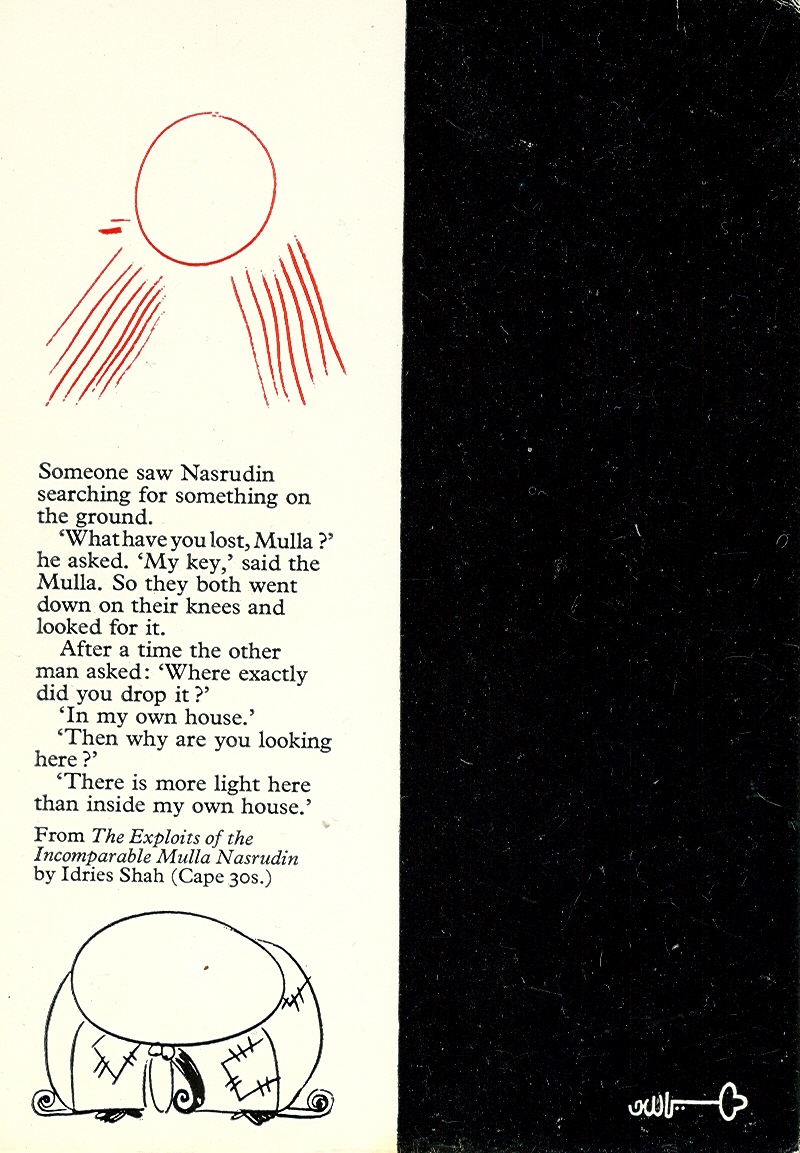 Someone saw Nasrudin
searching for something on
the ground.
‘What have you lost, Mulla?’
he asked. ‘My key,’ said the
Mulla. So they both went
down on their knees and
looked for it.
After a time the other
man asked: ‘Where exactly
did you drop it?’
‘In my own house.’
‘Then why are you looking
here?’
‘There is more light here
than inside my own house.’
From The Exploits of the
Incomparable Mulla Nasrudin
by Idries Shah (Cape 30s.)